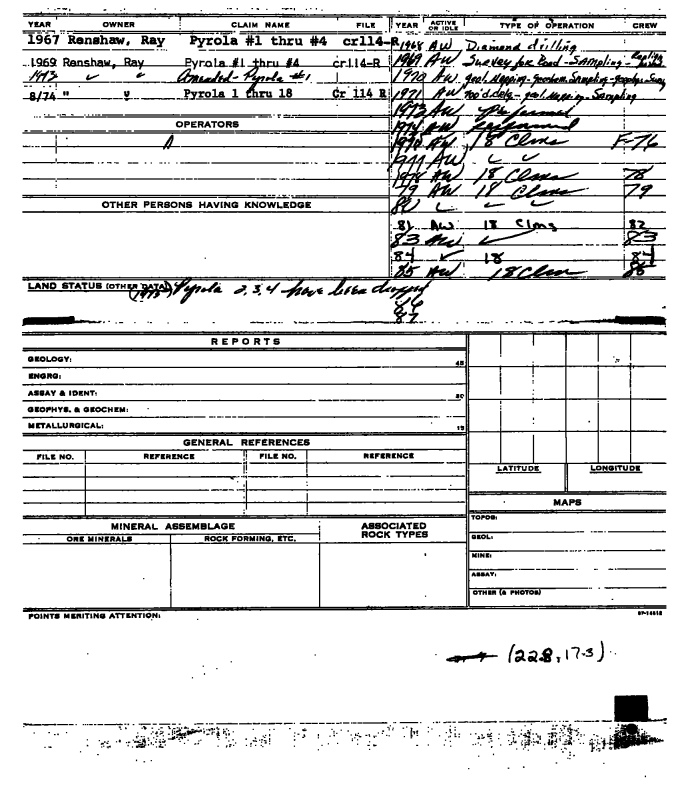 YEAR OWNER CLAIM NAME FILE
1967 Renshaw, Ray Pyrola #1 thru #4 cr114-R
1969 Renshaw, Ray Pyrola #1 thru #4 cr114-R
1973 Amended Pyrola #1
8/74 " " Pyrola 1 thru 18 Cr 114 R
OPERATORS
OTHER PERSONS HAVING KNOWLEDGE
YEAR ACTIVE OR IDLE TYPE OF OPERATION CREW
1968 AW Diamond drilling
1969 AW Survey for Road - SAmpling -
1970 AW geol. Mapping - geochem. Sampling - geophys.
1971 AW geol. Mapping - Sampling
1973 AW Performed
1974 AW Performed
AW 18 Clms F-76
1977 AW
1978 AW 18 Clms 78
79 AW 18 Clms 79
80
81 AW 18 Clms 82
83 AW 83
84 18 84
85 AW 18 Clms
86
87
LAND STATUS (OTHER DATA) Pyrola 2, 3, 4 have been dropped
REPORTS
GEOLOGY: 45
ENGRG:
ASSAY & IDENT: 30
GEOPHYS. & GEOCHEM:
METALLURGICAL: 15
GENERAL REFERENCES
FILE NO. REFERENCE FILE NO. REFERENCE
MINERAL ASSEMBLAGE
ORE MINERALS ROCK FORMING, ETC.
ASSOCIATED ROCK TYPES
LATITUDE LONGITUDE
MAPS
TOPOG:
GEOL:
MINE:
ASSAY:
OTHER (& PHOTOS)
POINTS MERITING ATTENTION:
(22.8, 17.3)